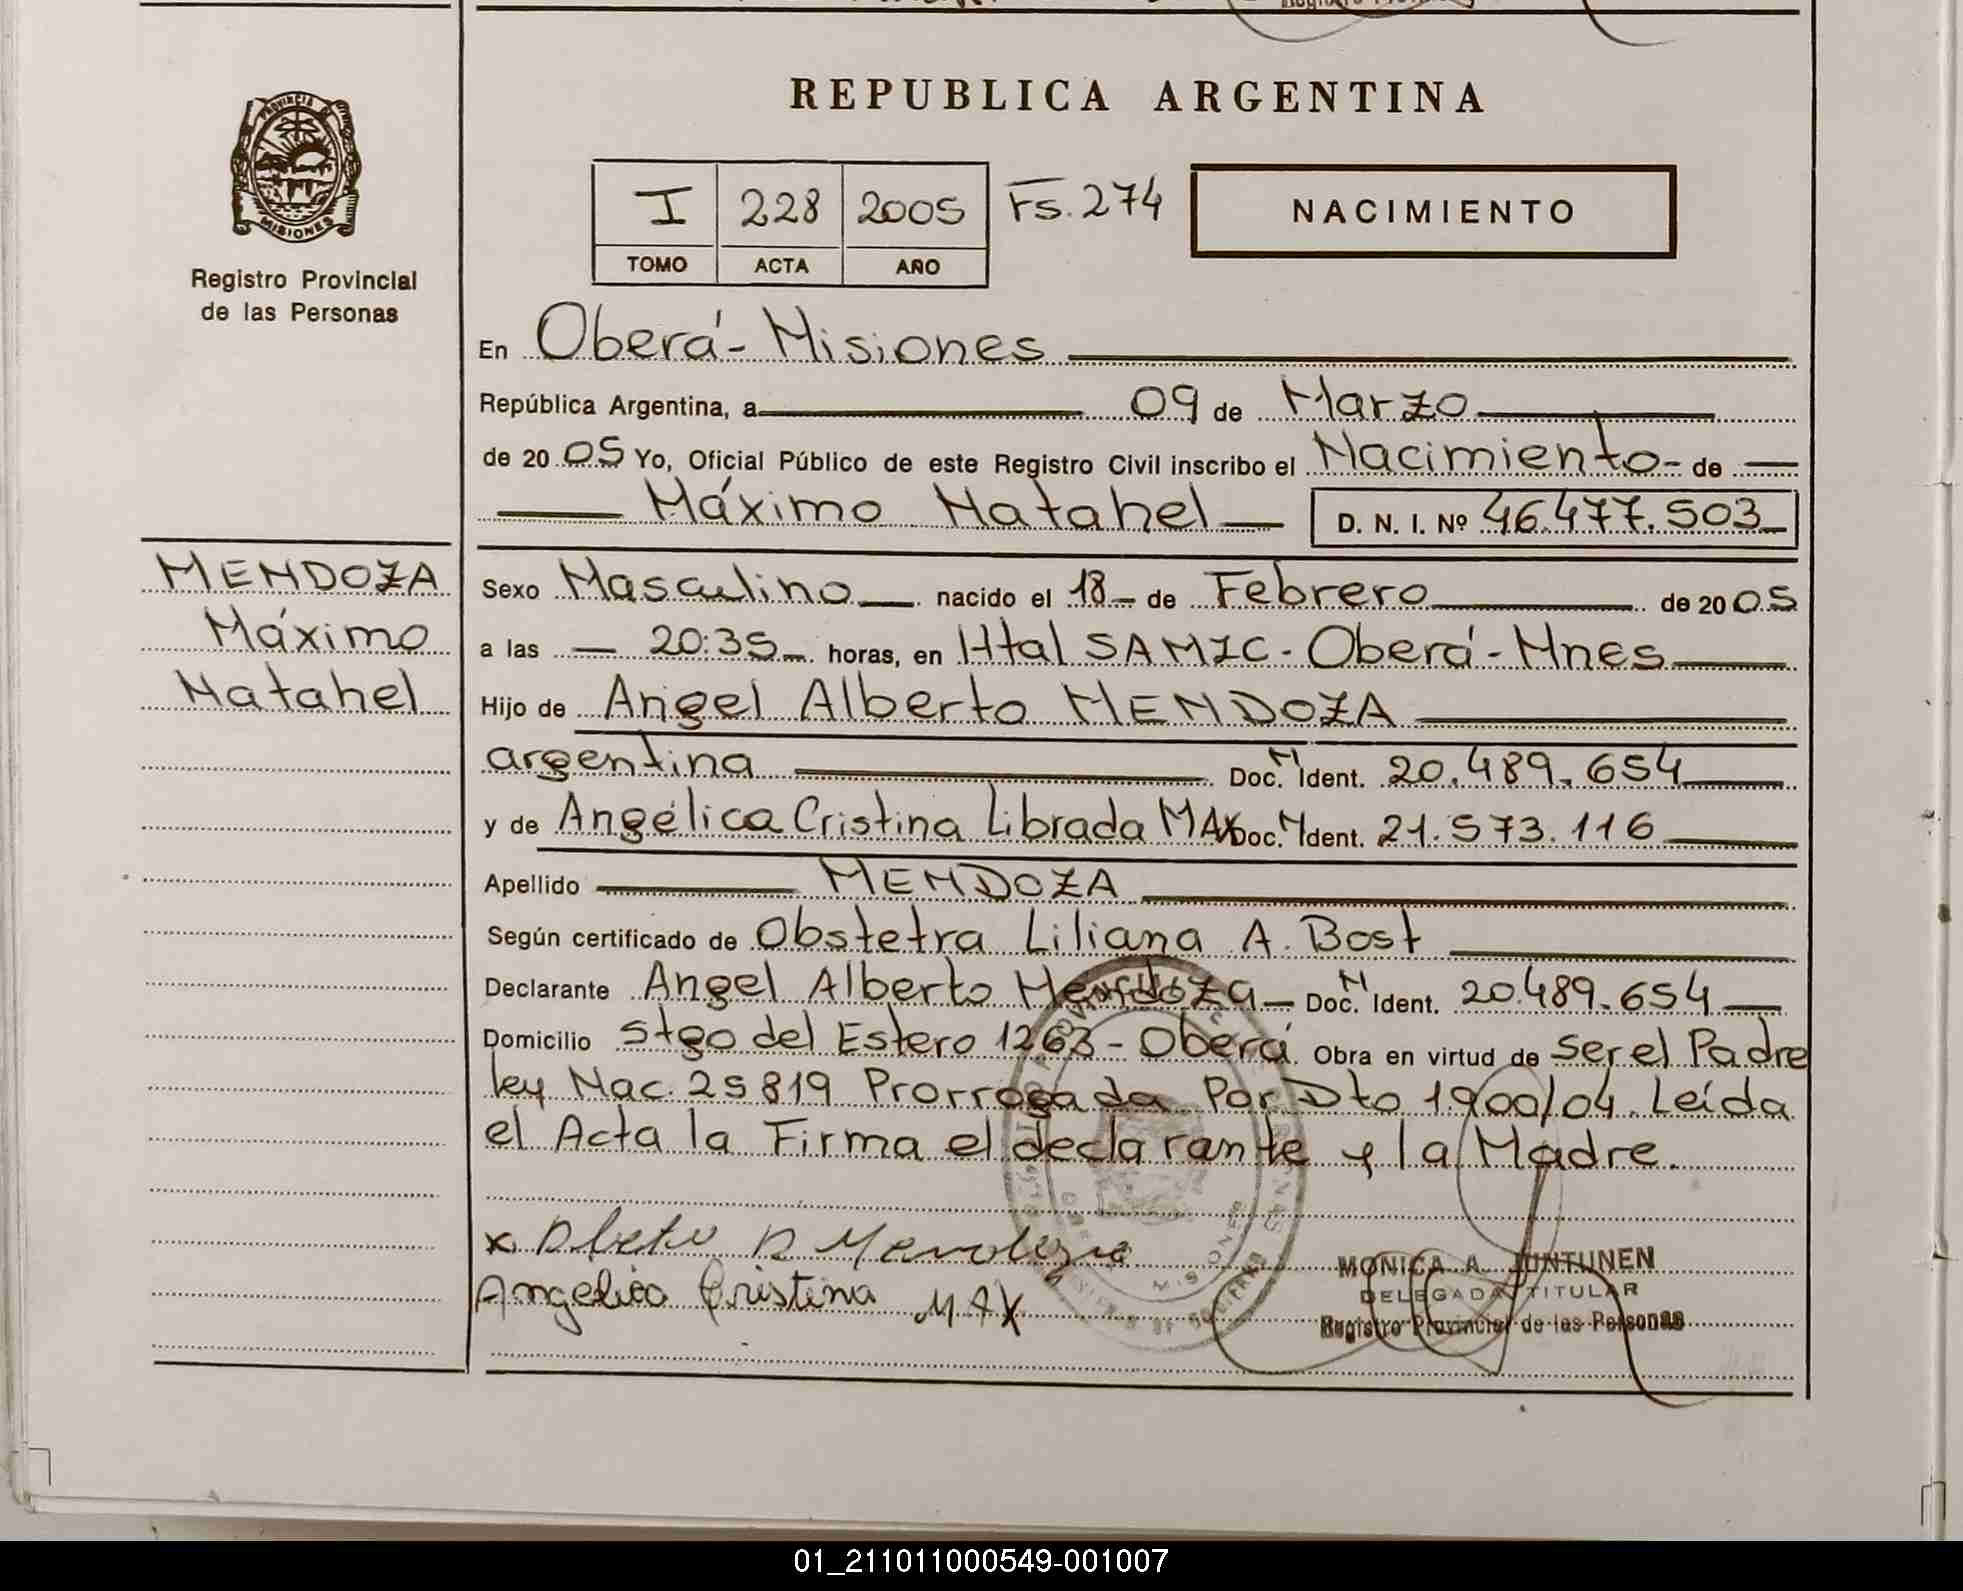 REPUBLICA ARGENTINA
PROVINCIA DE
MISIONES
Registro Provincial
de las Personas
I 228 2005 Fs. 274
TOMO ACTA AÑO
NACIMIENTO
En Oberá - Misiones
República Argentina, a 09 de Marzo
de 2005 Yo, Oficial Público de este Registro Civil inscribo el Nacimiento - de
Máximo Natahel D. N. I. Nº 46.477.503
MENDOZA
Máximo
Natahel
Sexo Masculino nacido el 18 - de Febrero de 2005
a las 20:35 horas, en Htal SAMIC - Oberá - Mnes
Hijo de Angel Alberto MENDOZA
argentina Doc. M Ident. 20.489.654
y de Angélica Cristina Librada MAX Doc. M Ident. 21.573.116
Apellido MENDOZA
Según certificado de Obstetra Liliana A. Bost
Declarante Angel Alberto Mendoza - Doc. M Ident. 20.489.654
Domicilio Stgo del Estero 1263 - Oberá Obra en virtud de ser el Padre
ley Nac. 25819 Prorrogada Por Dto 1900/04. Leída
el Acta la Firma el declarante y la Madre.
x
Angelica Cristina MAX
MISIONES
MONICA A. JUNTUNEN
DELEGADA TITULAR
Registro Provincial de las Personas
01_211011000549-001007